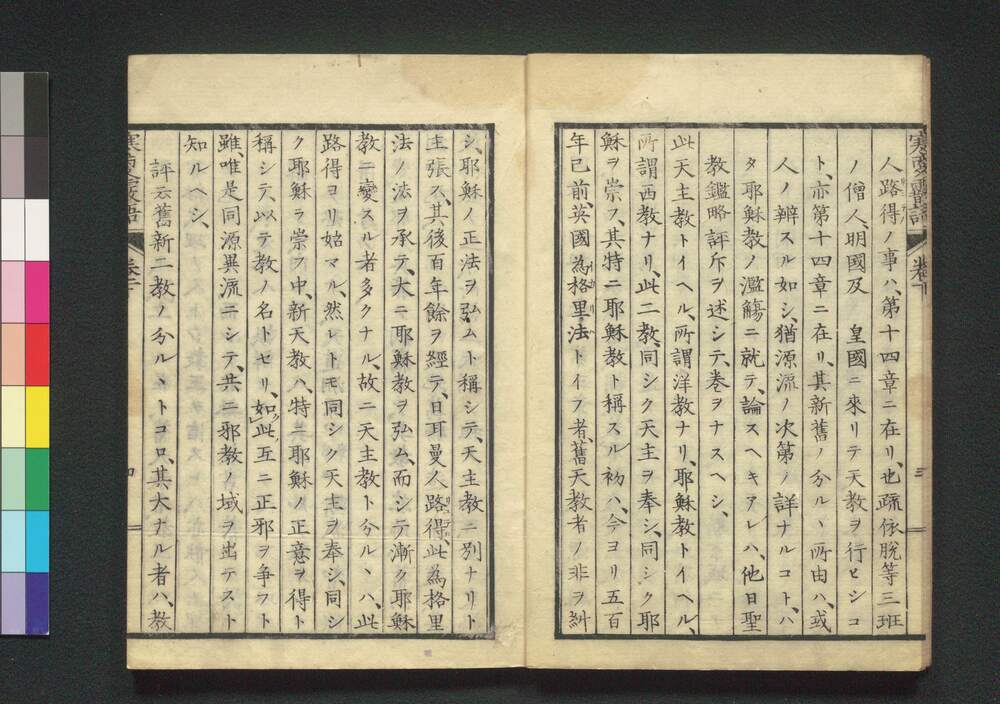 人路得ノ事ハ、第十四章ニ在リ、也疏依脱等三班
ノ僧人、明國及　皇國ニ來リテ天教ヲ行ヒシコ
ト、亦第十四章ニ在リ、其新舊ノ分ルヽ所由ハ、或
人ノ辨スル如シ、猶源流ノ次第ノ詳ナルコト、ハ
タ耶穌教ノ濫觴ニ就テ、論スヘキアレハ、他日聖
教鑑略評斥ヲ述シテ、巻ヲナスヘシ、
此天主教トイヘル、所謂洋教ナリ、耶穌教トイヘル、
所謂西教ナリ、此二教、同シク天主ヲ奉シ、同シク耶
穌ヲ崇フ、其特ニ耶穌教ト稱スル初ハ、今ヨリ五百
年已前、英國為格里法トイフ者、舊天教者ノ非ヲ糾
三
シ、耶穌ノ正法ヲ弘ムト稱シテ、天主教ニ別ナリト
主張ス、其後百年餘ヲ經テ、日耳曼人路得、此為格里
法ノ法ヲ承テ、大ニ耶穌教ヲ弘ム、而シテ漸ク耶穌
教ニ變スル者多クナル、故ニ天主教ト分ルヽハ、此
路得ヨリ始マル、然レトモ同シク天主ヲ奉シ、同シ
ク耶穌ヲ崇フ中、新天教ハ、特ニ耶穌ノ正意ヲ得ト
稱シテ、以テ教ノ名トセリ、如此互ニ正邪ヲ爭フト
雖、唯是同源異流ニシテ、共ニ邪教ノ域ヲ出テスト
知ルヘシ、
評云舊新二教ノ分ルヽトコロ、其大ナル者ハ、教
四